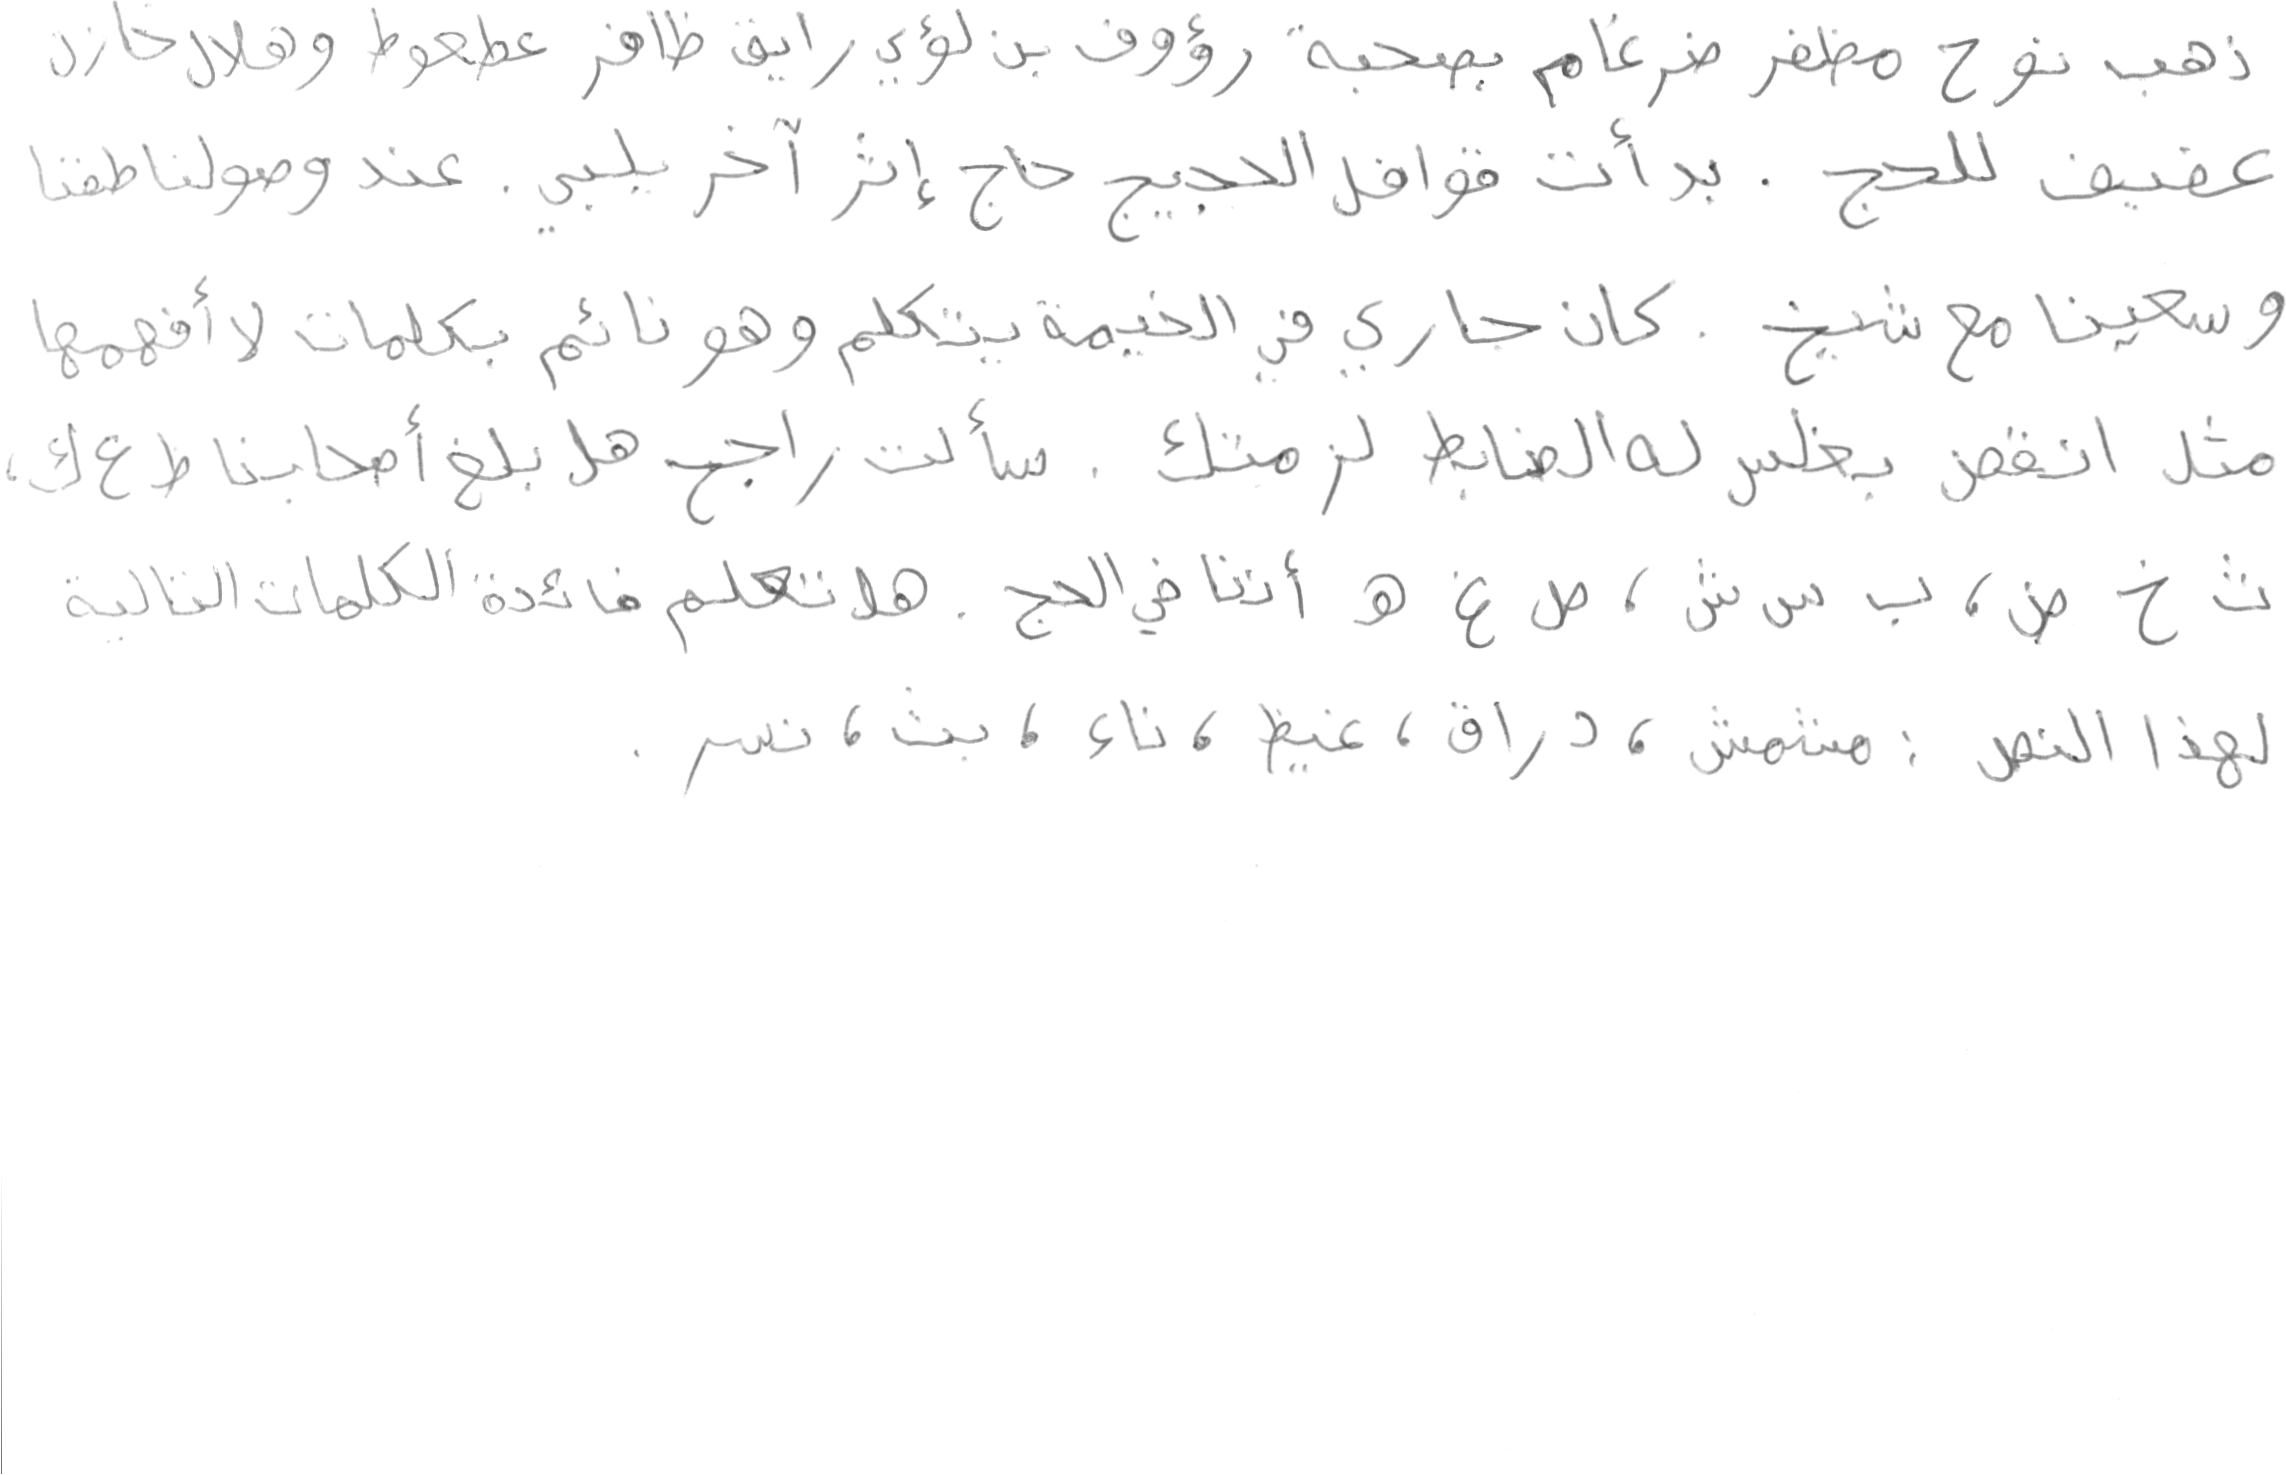 ذهب نوح مظفر ضرغام بصحبة رؤوف بن لؤي رايق ظافر عطعوط وهلال خازن
عفيف للحج . بدأت قوافل الحجيج حاج إثر آخر يلبي . عند وصولنا طفنا
وسعينا مع شيخ . كان جاري في الخيمة يتكلم وهو نائم بكلمات لا أفهمها
مثل انقض بغلس له الضابط لزمتك . سألت راجح هل بلغ أصحابنا ط ع ك ،
ث خ ض ، ب س ش ، ص غ ه أننا في الحج . هلا تعلم فائدة الكلمات التالية
لهذا النص : مشمش ، دراق ، غيظ ، ناء ، بث ، نسر .